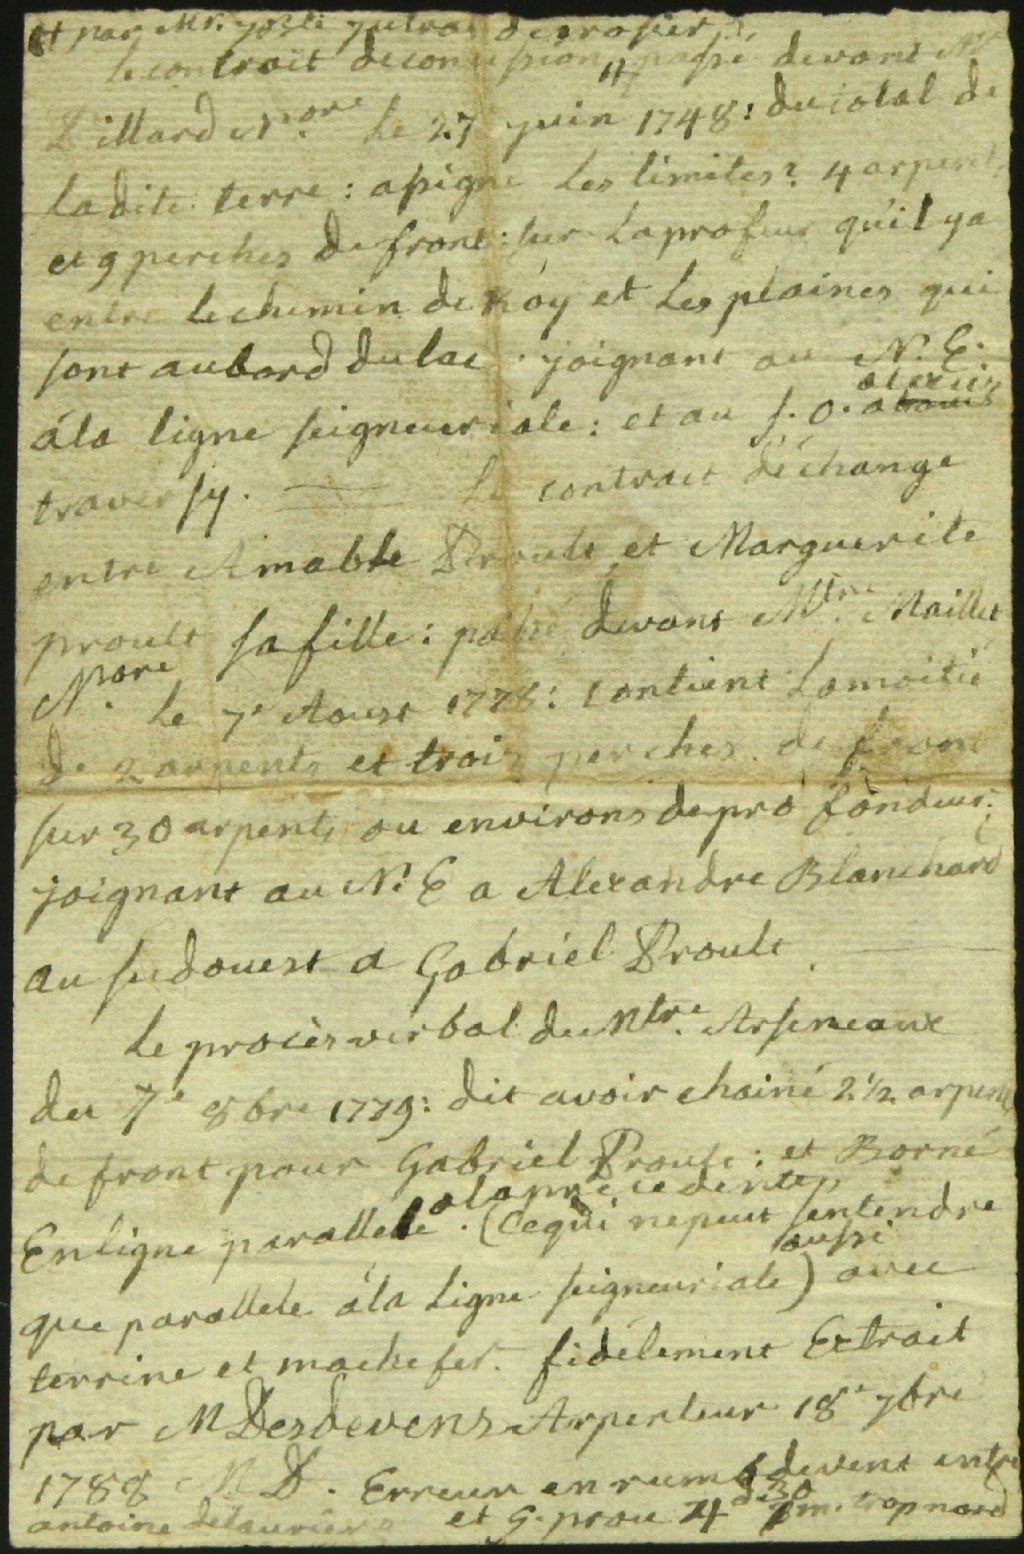 # par Mr. jos: de prosier
le contrait deconcession # passé devant Mr
Pillard Nore. le 27 juin 1748: du total de
la dite terre: assigne les limites: 4 arpents
et 9 perches de front: sur la profeur qu'il ya
entre le chemin de Roy et les plaines qui
sont au bord du lac. joignant au N. E.
à la ligne seigneuriale: et au S. O. alexis
traversy. — le contract d'échange
entre Amable Proult et Marguerite
proult sa fille: passé devant Mtre. Maillet
Nore. le 7e Aoust 1778: contient la moitié
de 2 arpents et trois perches de front
sur 30 arpents ou environs de pro fondeur:
joignant au N. E a Alexandre Blanchard
au sudouest a Gabriel Proult. —
le procès verbal du Mtre. Arseneaux
du 7e 8bre 1779: dit avoir chainé 2 1/2 arpents
de front pour Gabriel Proult: et Borné
a la précédente,
En ligne parallele. (Ce qui ne peut sentendre
aussi
que parallele à la ligne seigneuriale) avec
terrine et machefer. fidélement Extrait
par M Desdevens Arpenteur 18e 7bre
1788 M. D. Erreur en rumb devent entre
antoine delauriers et G. prou 4d 30 m. trop nord